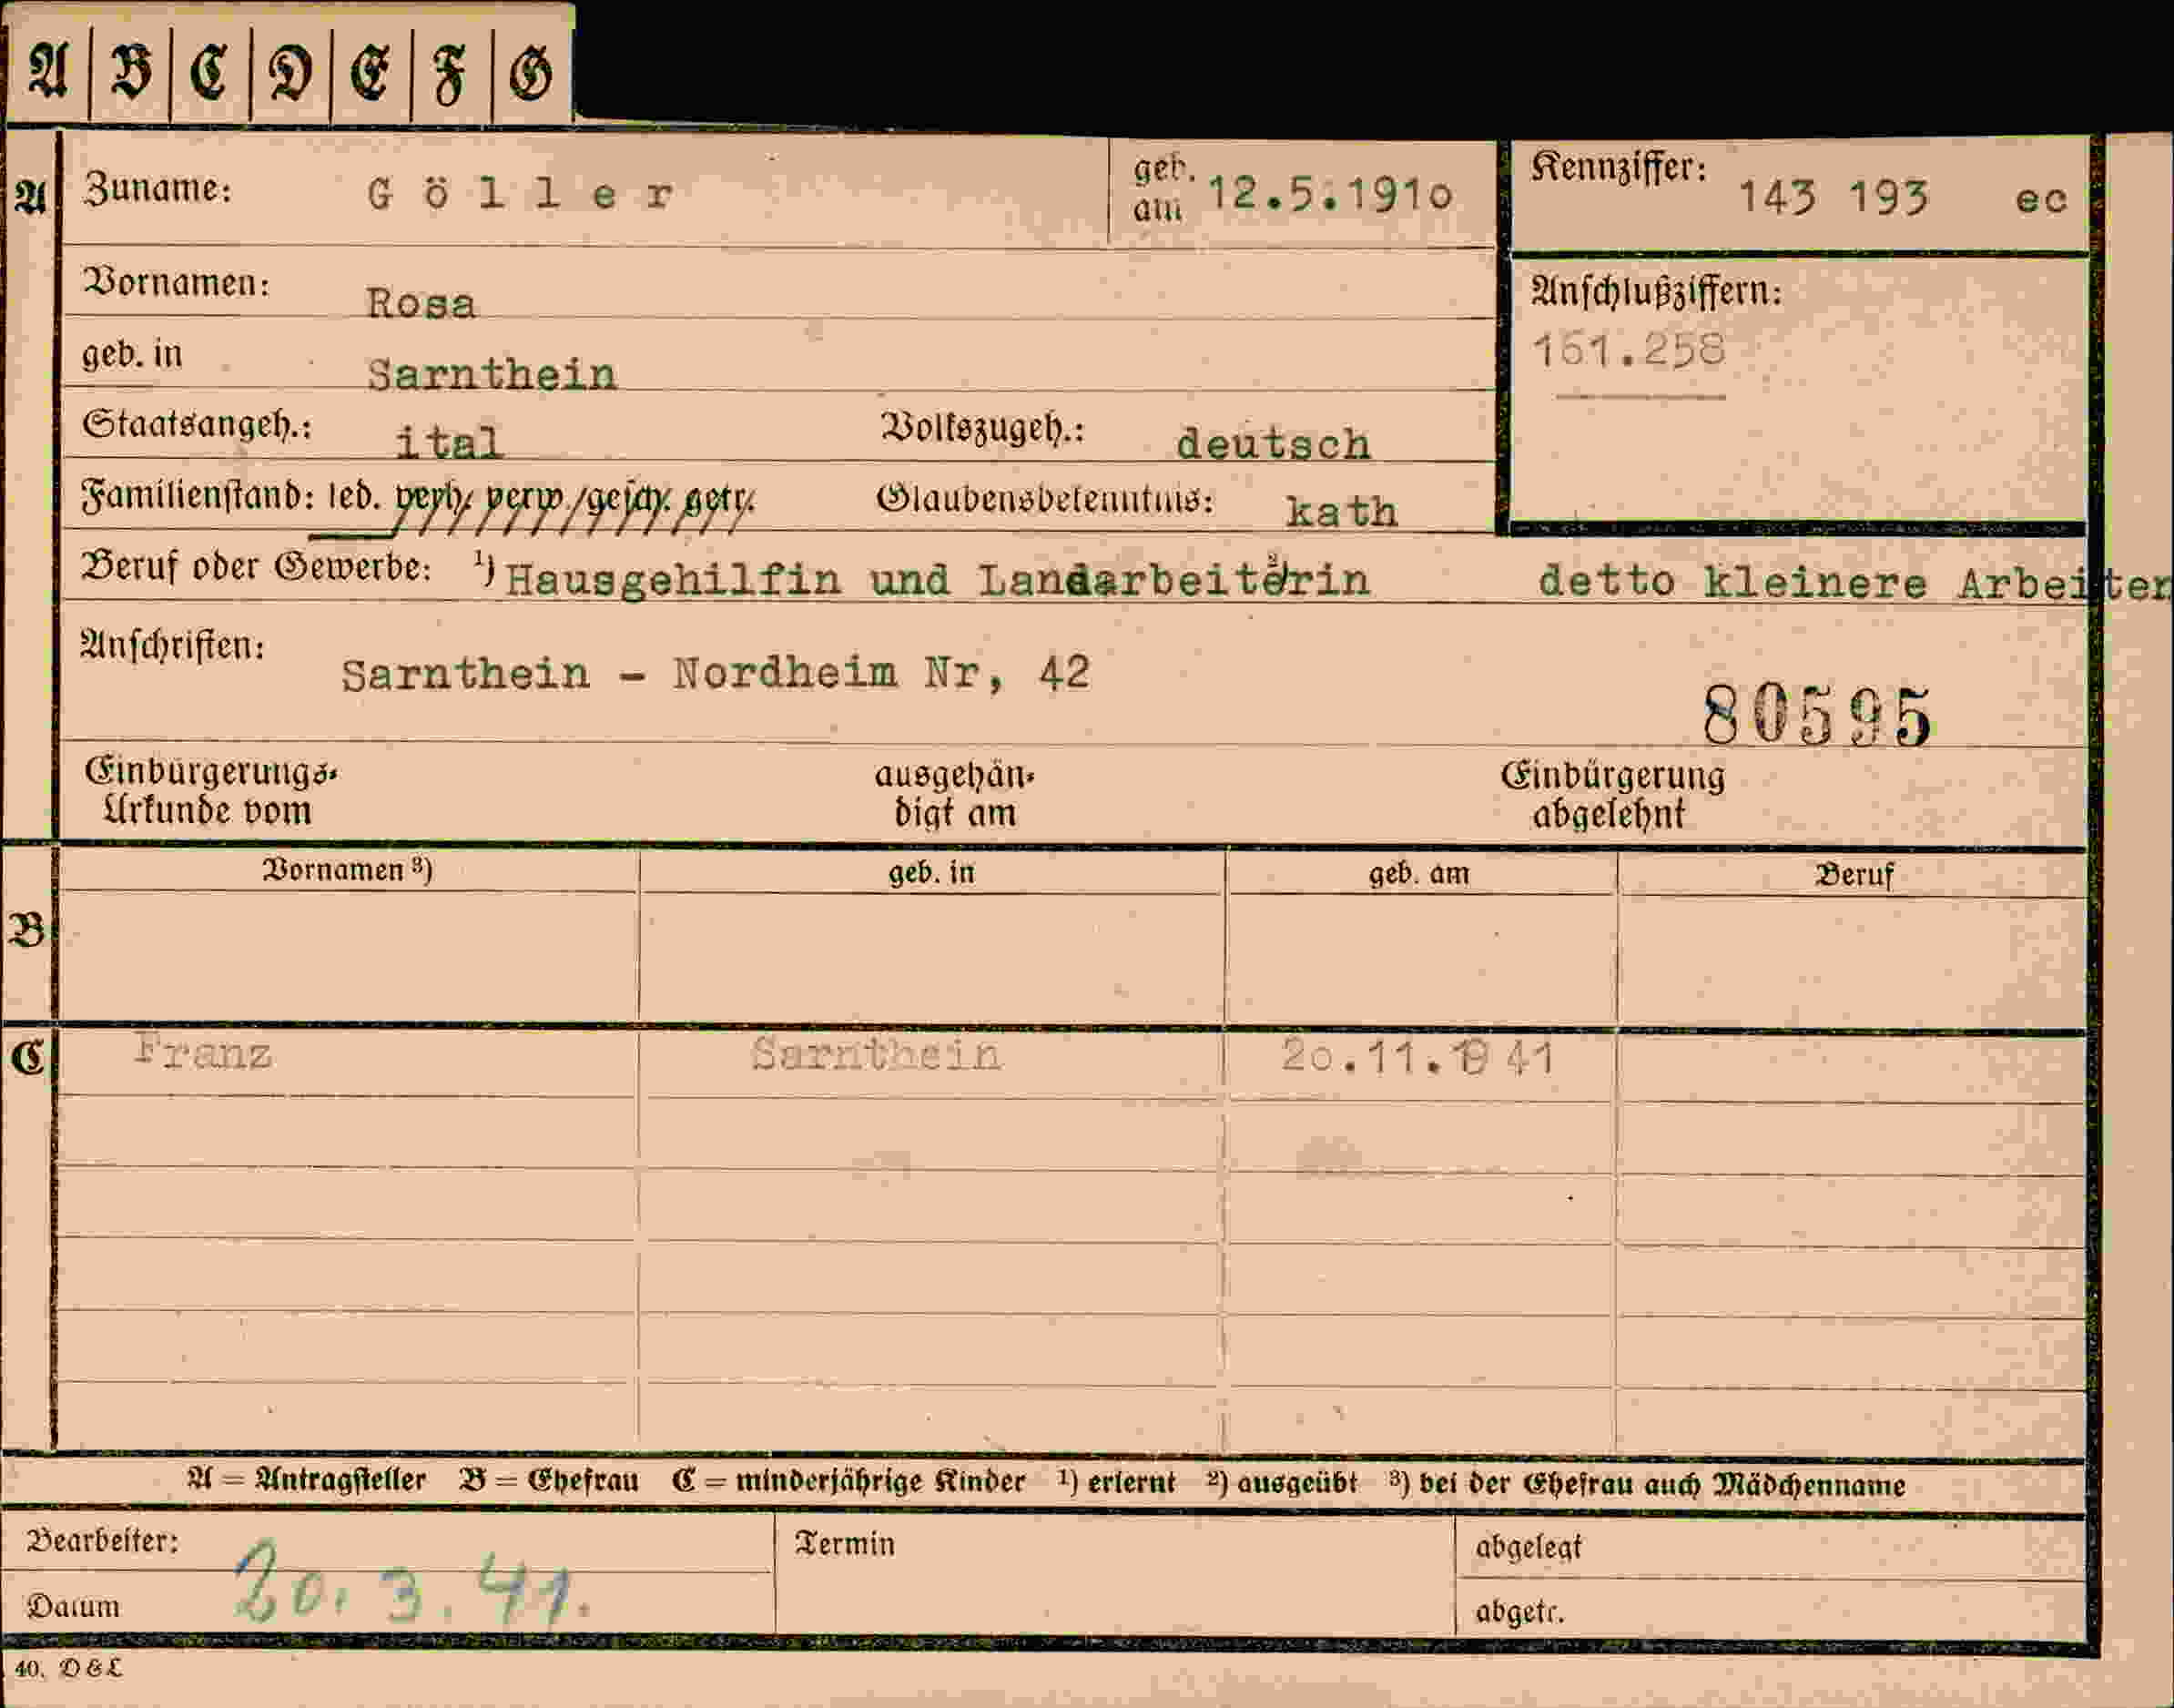 A B C D E F G
A Zuname: Göller geb. am 12.5.1910 Kennziffer: 143 193 ec
Vornamen: Rosa Anschlußziffern:
geb. in Sarnthein 161.258
Staatsangeh.: ital Volkszugeh.: deutsch
Familienstand: led. verh. verw. gesch. getr. Glaubensbekenntnis: kath
Beruf oder Gewerbe: 1) Hausgehilfin und Landarbeiterin 2) detto kleinere Arbeiten
Anschriften: Sarnthein - Nordheim Nr, 42
80595
Einbürgerungs- ausgehän- Einbürgerung
Urkunde vom digt am abgelehnt
Vornamen 3) geb. in geb. am Beruf
B
C Franz Sarnthein 20.11.1941
A = Antragsteller B = Ehefrau C = minderjährige Kinder 1) erlernt 2) ausgeübt 3) bei der Ehefrau auch Mädchenname
Bearbeiter: Termin abgelegt
Datum 20. 3. 41. abgetr.
40. D & L